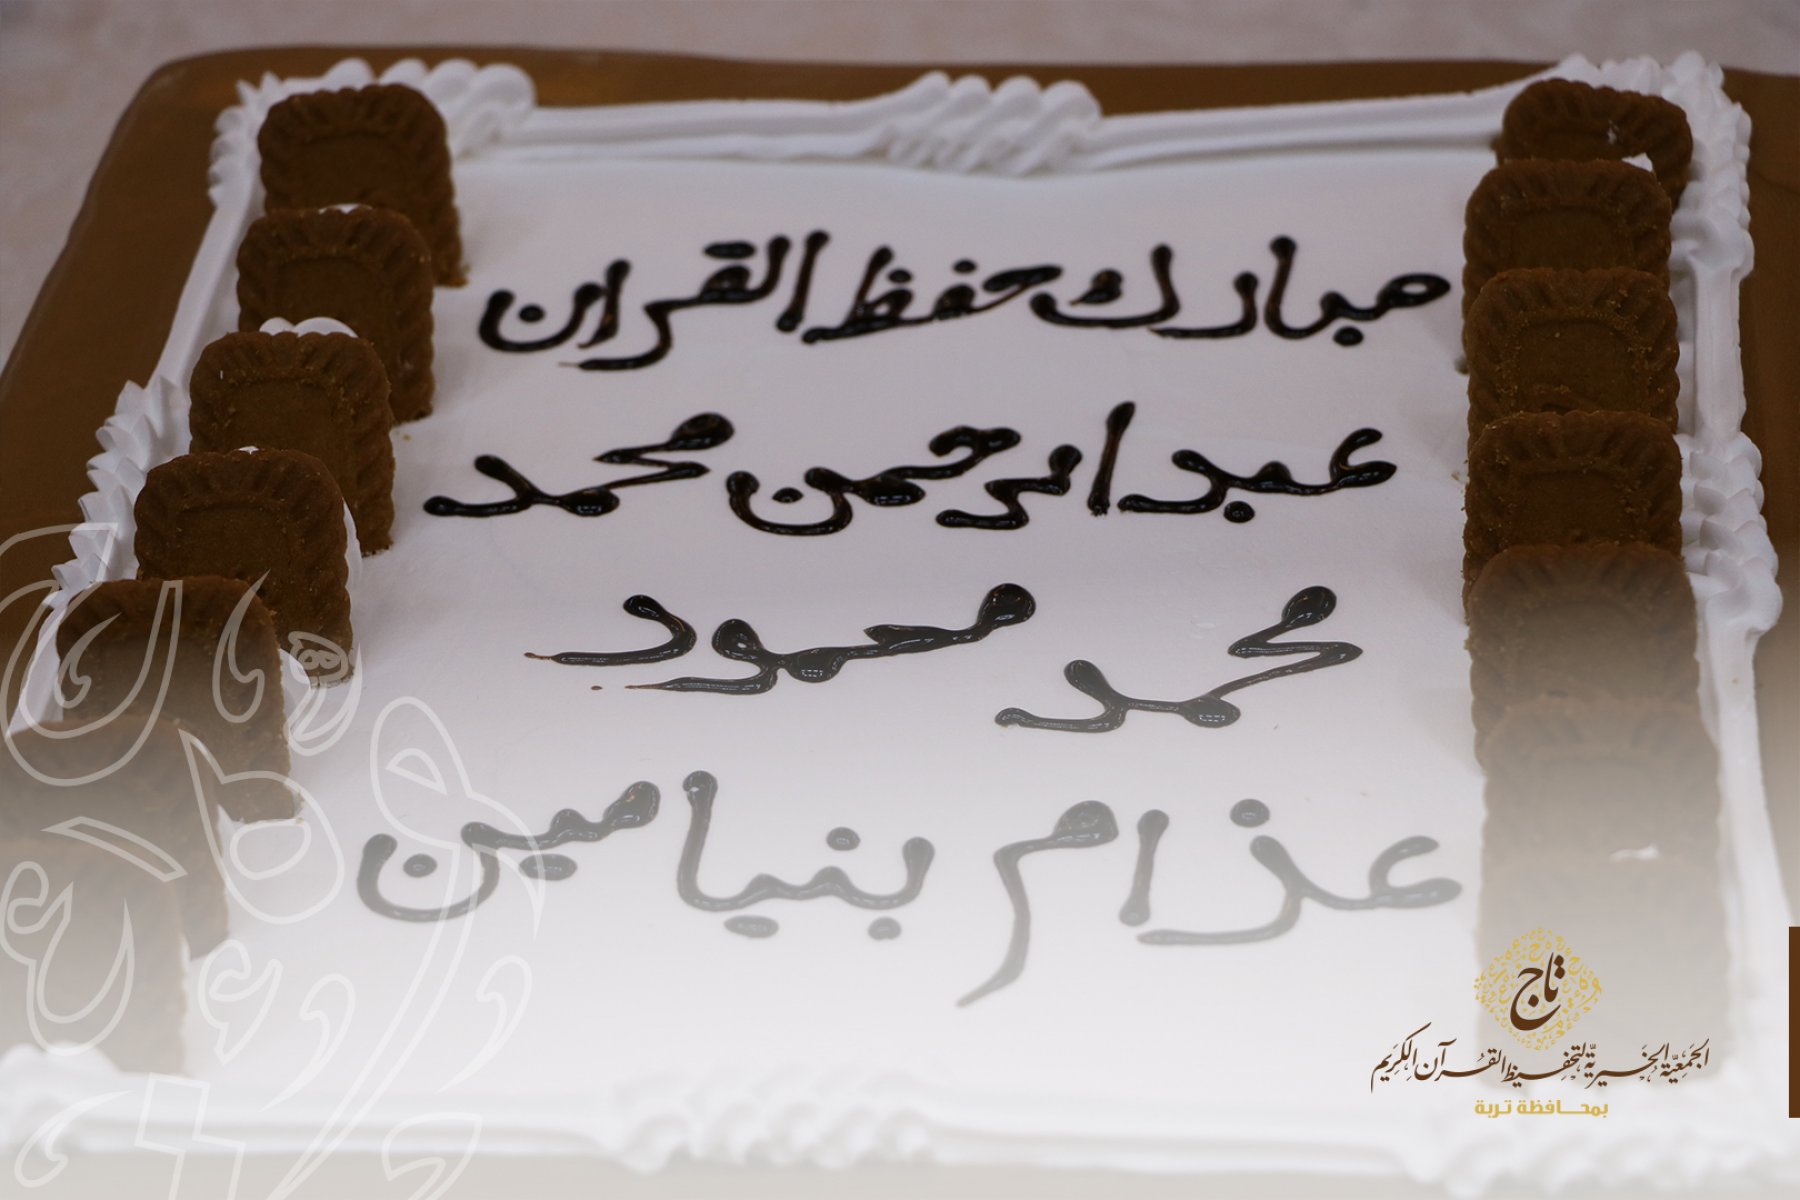 مبارك حفظ القران
عبد الرحمن محمد
محمد محمود
عذام بنيامين
تاج
الجمعية الخيرية لتحفيظ القرآن الكريم
بمحافظة تربة